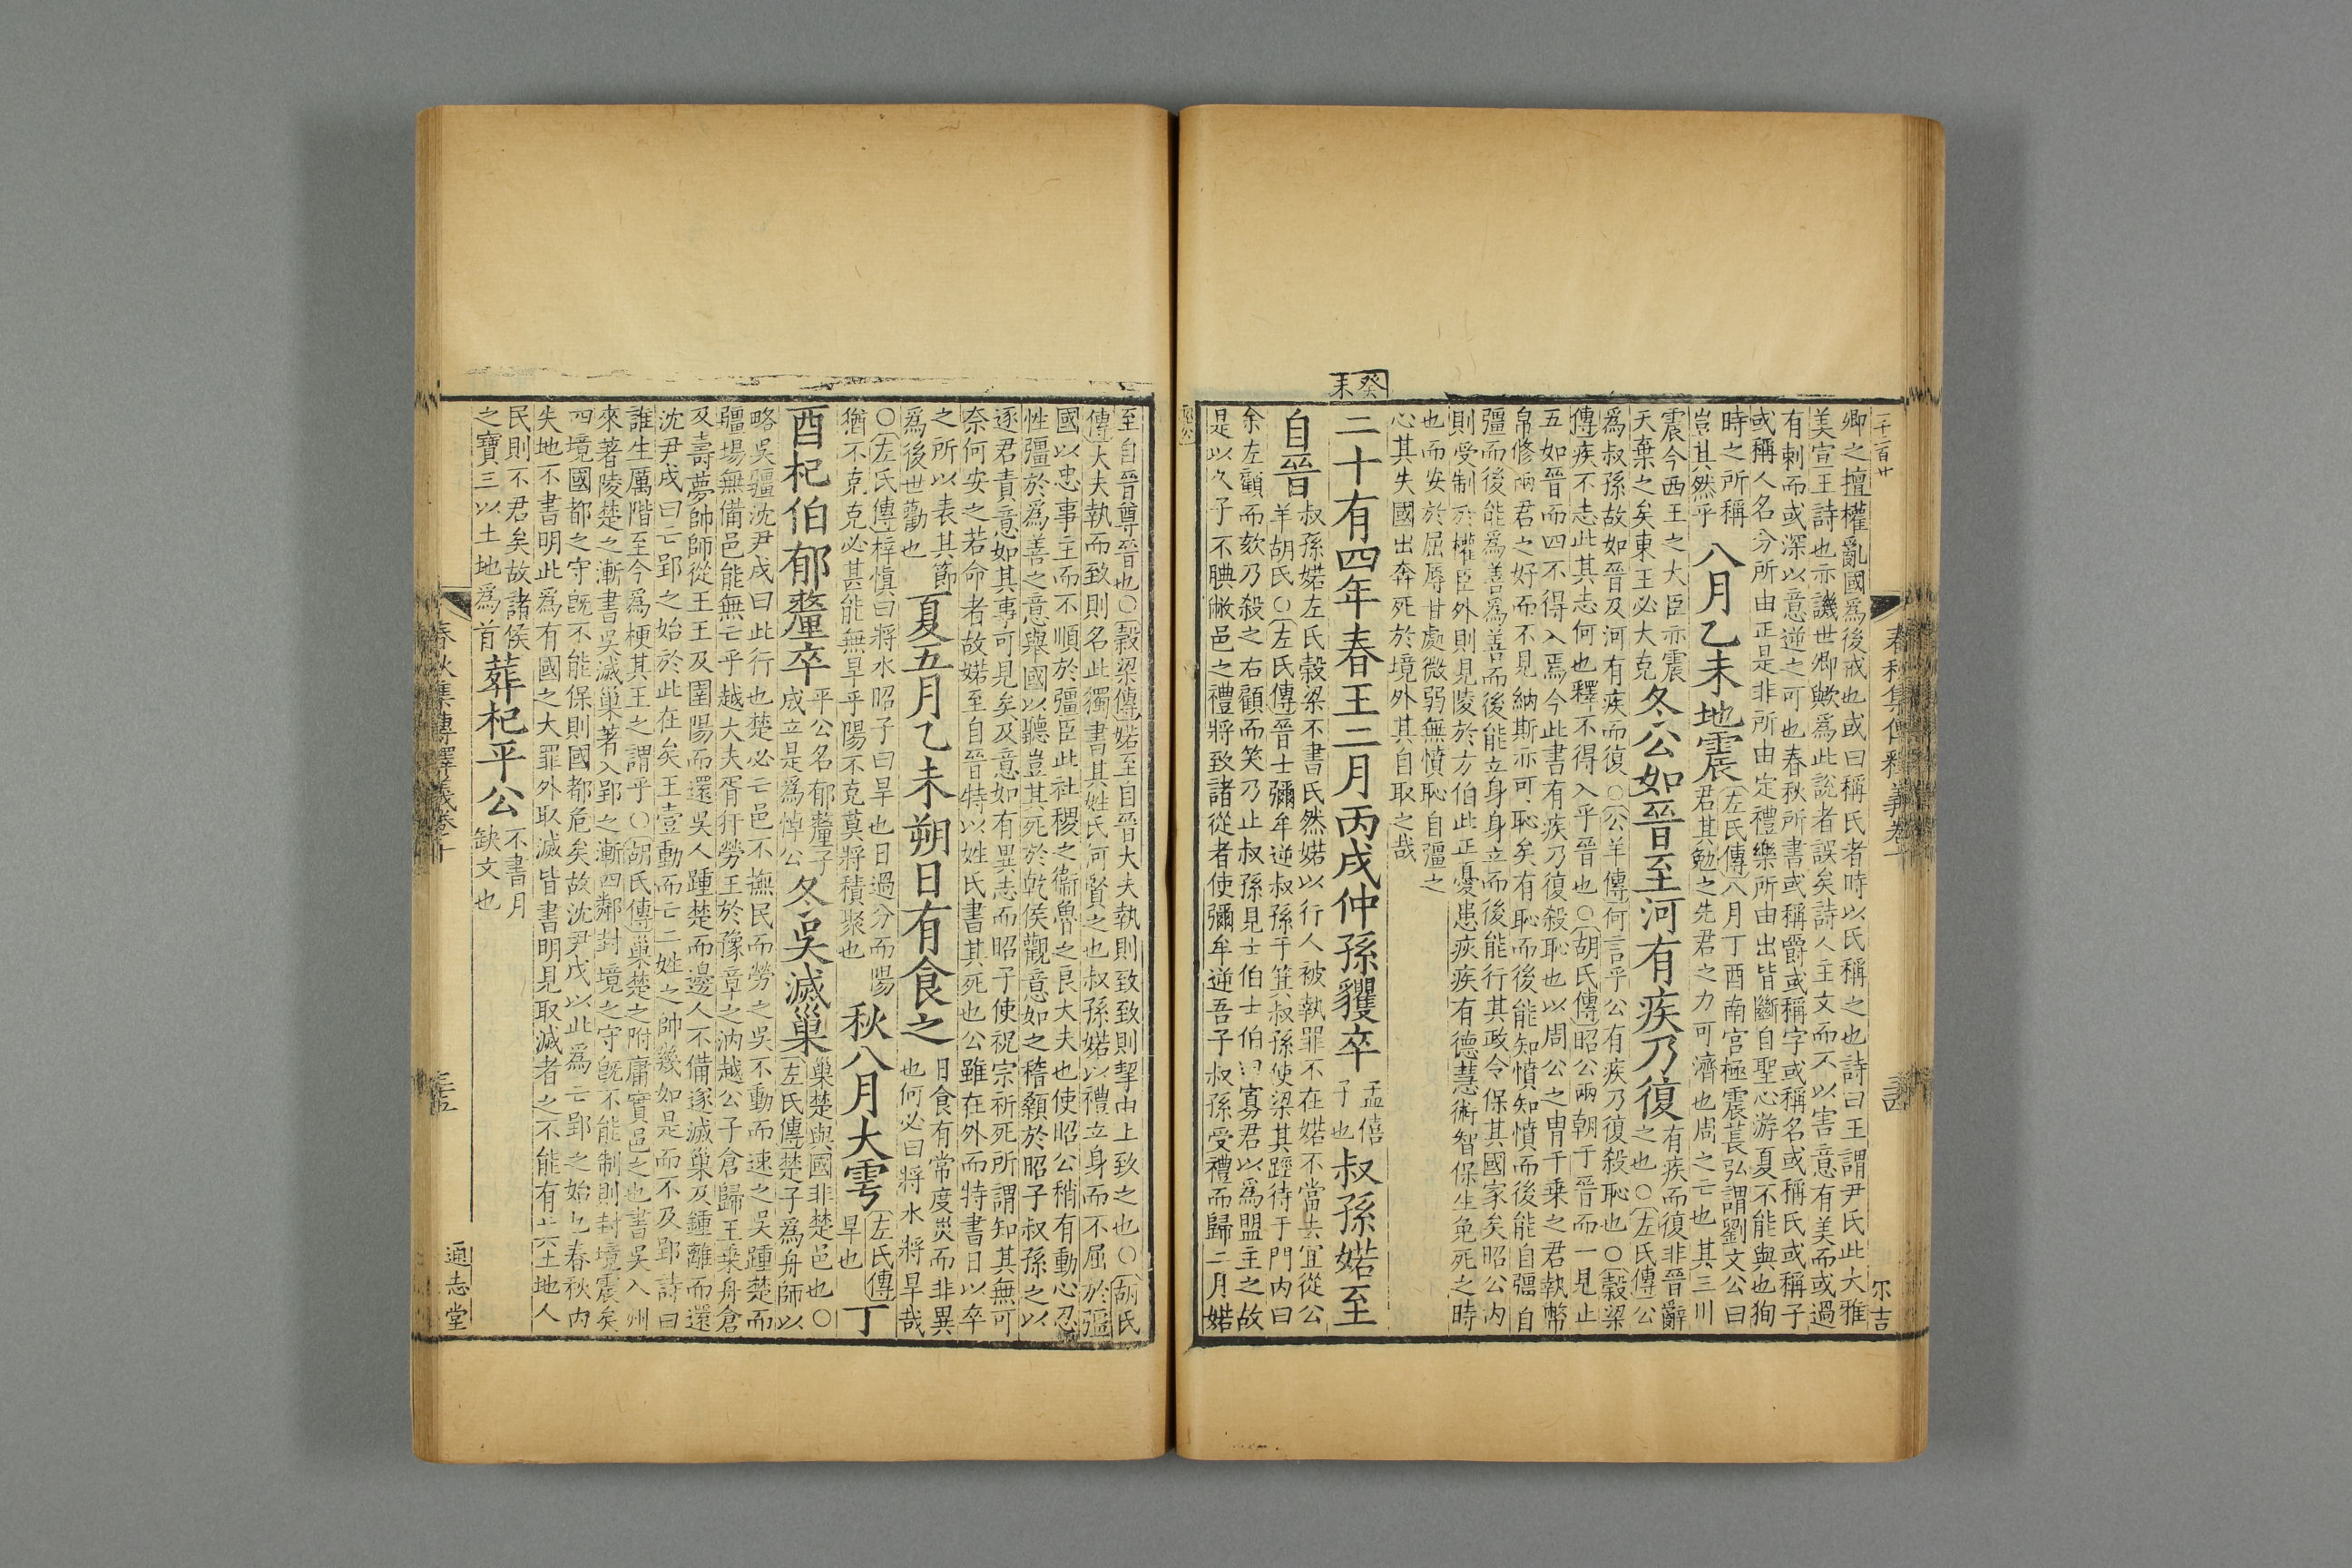 卿之擅權亂國爲後戒也或曰稱氏者時以氏稱之也詩曰王謂尹氏此大雅
美宣王詩也亦譏世卿歟爲此說者誤矣詩人主文而不以害意有美而或過
有刺而或深以意逆之可也春秋所書或稱爵或稱字或稱名或稱氏或稱子
或稱人名分所由正是非所由定禮樂所由出皆斷自聖心游夏不能與也狥
時之所稱
豈其然乎
八月乙未地震
左氏傳八月丁酉南宮極震萇弘謂劉文公曰
君其勉之先君之力可濟也周之亡也其三川
震今西王之大臣亦震
天棄之矣東王必大克
冬公如晉至河有疾乃復
有疾而復非晉辭
之也○左氏傳公
爲叔孫故如晉及河有疾而復○公羊傳何言乎公有疾乃復殺恥也○穀梁
傳疾不志此其志何也釋不得入乎晉也○胡氏傳昭公兩朝于晉而一見止
五如晉而四不得入焉今此書有疾乃復殺恥也以周公之冑千乘之君執幣
帛修兩君之好而不見納斯亦可恥矣有恥而後能知憤知憤而後能自彊自
彊而後能爲善爲善而後能立身身立而後能行其政令保其國家矣昭公內
則受制於權臣外則見陵於方伯此正憂患疢疾有德慧術智保生免死之時
也而安於屈辱甘處微弱無憤恥自彊之
心其失國出奔死於境外其自取之哉
癸未
二十有四年春王二月丙戌仲孫貜卒
孟僖
子也
叔孫婼至
自晉
叔孫婼左氏穀梁不書氏然婼以行人被執罪不在婼不當去宜從公
羊胡氏○左氏傳晉士彌牟逆叔孫于箕叔孫使梁其踁待于門內曰
余左顧而欬乃殺之右顧而笑乃止叔孫見士伯士伯曰寡君以爲盟主之故
是以久子不腆敝邑之禮將致諸從者使彌牟逆吾子叔孫受禮而歸二月婼
春秋集傳釋義卷十
尔吉
至自晉尊晉也○穀梁傳婼至自晉大夫執則致致則挈由上致之也○胡氏
傳大夫執而致則名此獨書其姓氏何賢之也叔孫婼以禮立身而不屈於彊
國以忠事主而不順於彊臣此社稷之衞魯之良大夫也使昭公稍有動心忍
性彊於爲善之意與國以聽豈其死於乾侯觀意如之稽顙於昭子叔孫之以
逐君責意如其事可見矣及意如有異志而昭子使祝宗祈死所謂知其無可
奈何安之若命者故婼至自晉特以姓氏書其死也公雖在外而特書日以卒
之所以表其節
爲後世勸也
夏五月乙未朔日有食之
日食有常度災而非異
也何必曰將水將旱哉
○左氏傳梓愼曰將水昭子曰旱也日過分而陽
猶不克克必甚能無旱乎陽不克莫將積聚也
秋八月大雩
左氏傳
旱也
丁
酉杞伯郁釐卒
平公名郁釐子
成立是爲悼公
冬吳滅巢
巢楚與國非楚邑也○
左氏傳楚子爲舟師以
略吳疆沈尹戌曰此行也楚必亡邑不撫民而勞之吳不動而速之吳踵楚而
疆場無備邑能無亡乎越大夫胥犴勞王於豫章之汭越公子倉歸王乘舟倉
及壽夢帥師從王王及圉陽而還吳人踵楚而邊人不備遂滅巢及鍾離而還
沈尹戌曰亡郢之始於此在矣王壹動而亡二姓之帥幾如是而不及郢詩曰
誰生厲階至今爲梗其王之謂乎○胡氏傳巢楚之附庸實邑之也書吳入州
來著陵楚之漸書吳滅巢著入郢之漸四鄰封境之守旣不能制則封境震矣
四境國都之守旣不能保則國都危矣故沈尹戌以此爲亡郢之始也春秋內
失地不書明此爲有國之大罪外取滅皆書明見取滅者之不能有其土地人
民則不君矣故諸侯
之寶三以土地爲首
葬杞平公
不書月
缺文也
春秋集傳釋義卷十
通志堂